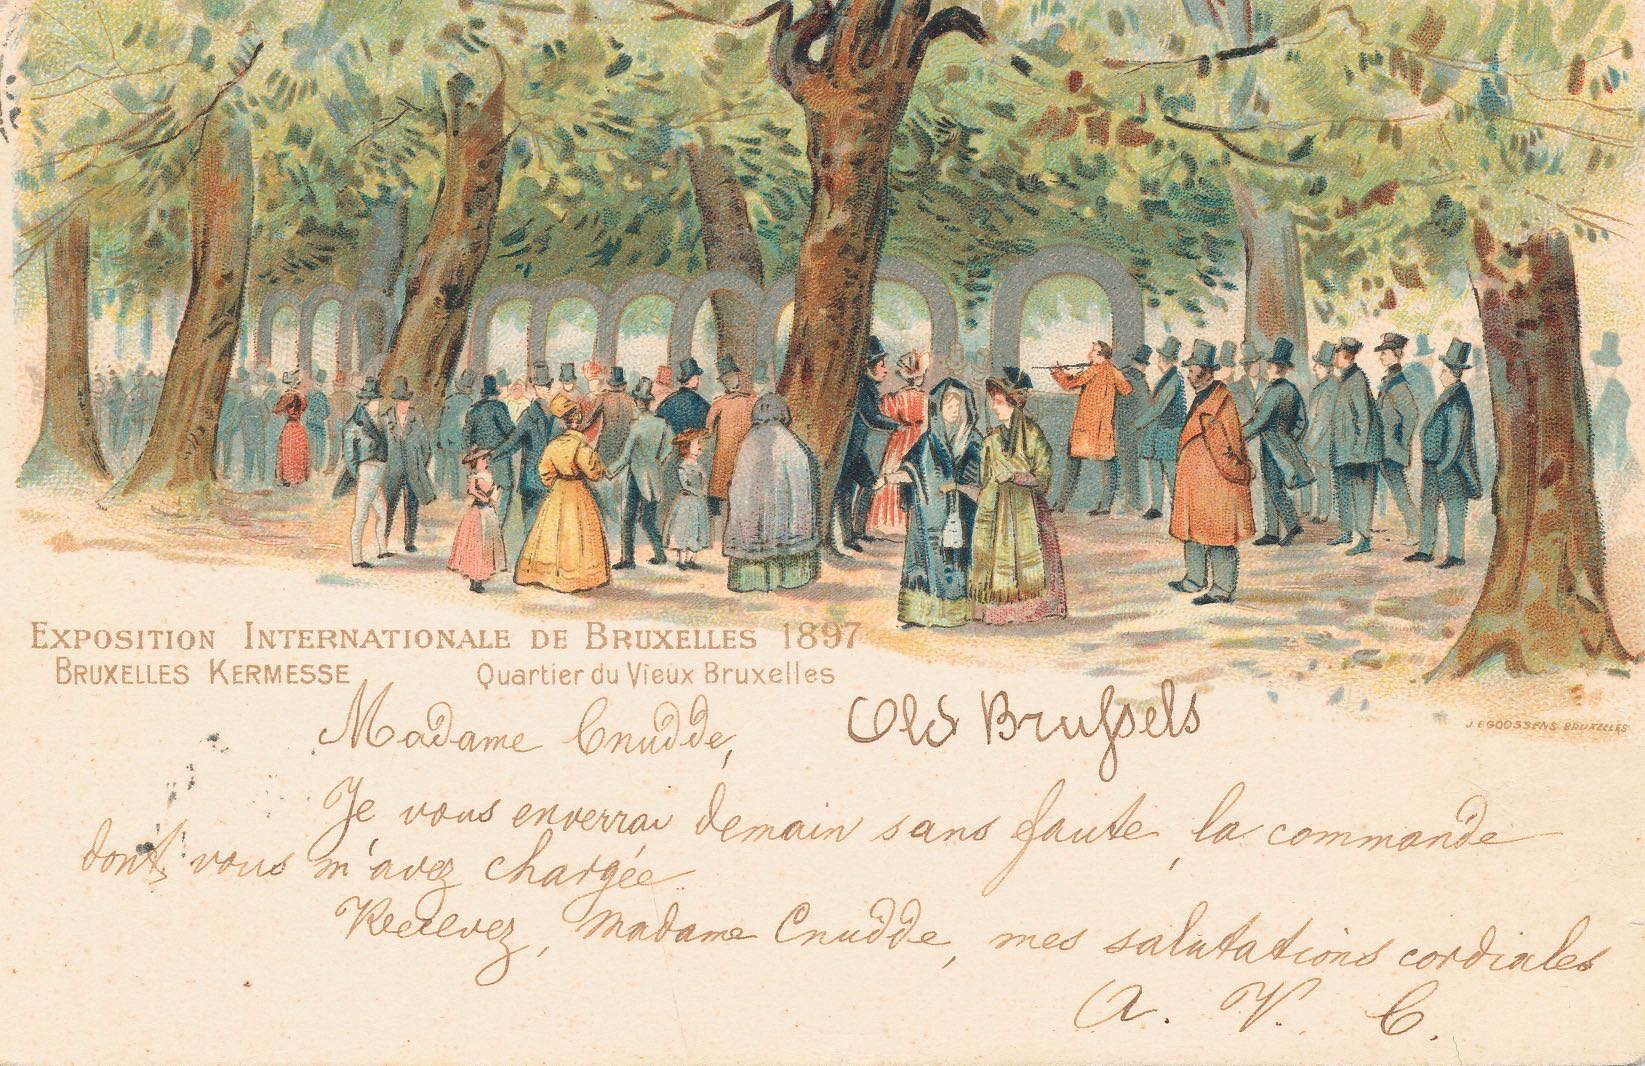 EXPOSITION INTERNATIONALE DE BRUXELLES 1897
BRUXELLES KERMESSE Quartier du Vieux Bruxelles
J.E GOOSSENS BRUXELLES
Madame Cnudde, Old Brussels
Je vous enverrai demain sans faute, la commande
dont vous m'avez chargée
Recevez, Madame Cnudde, mes salutations cordiales
A. V. C.